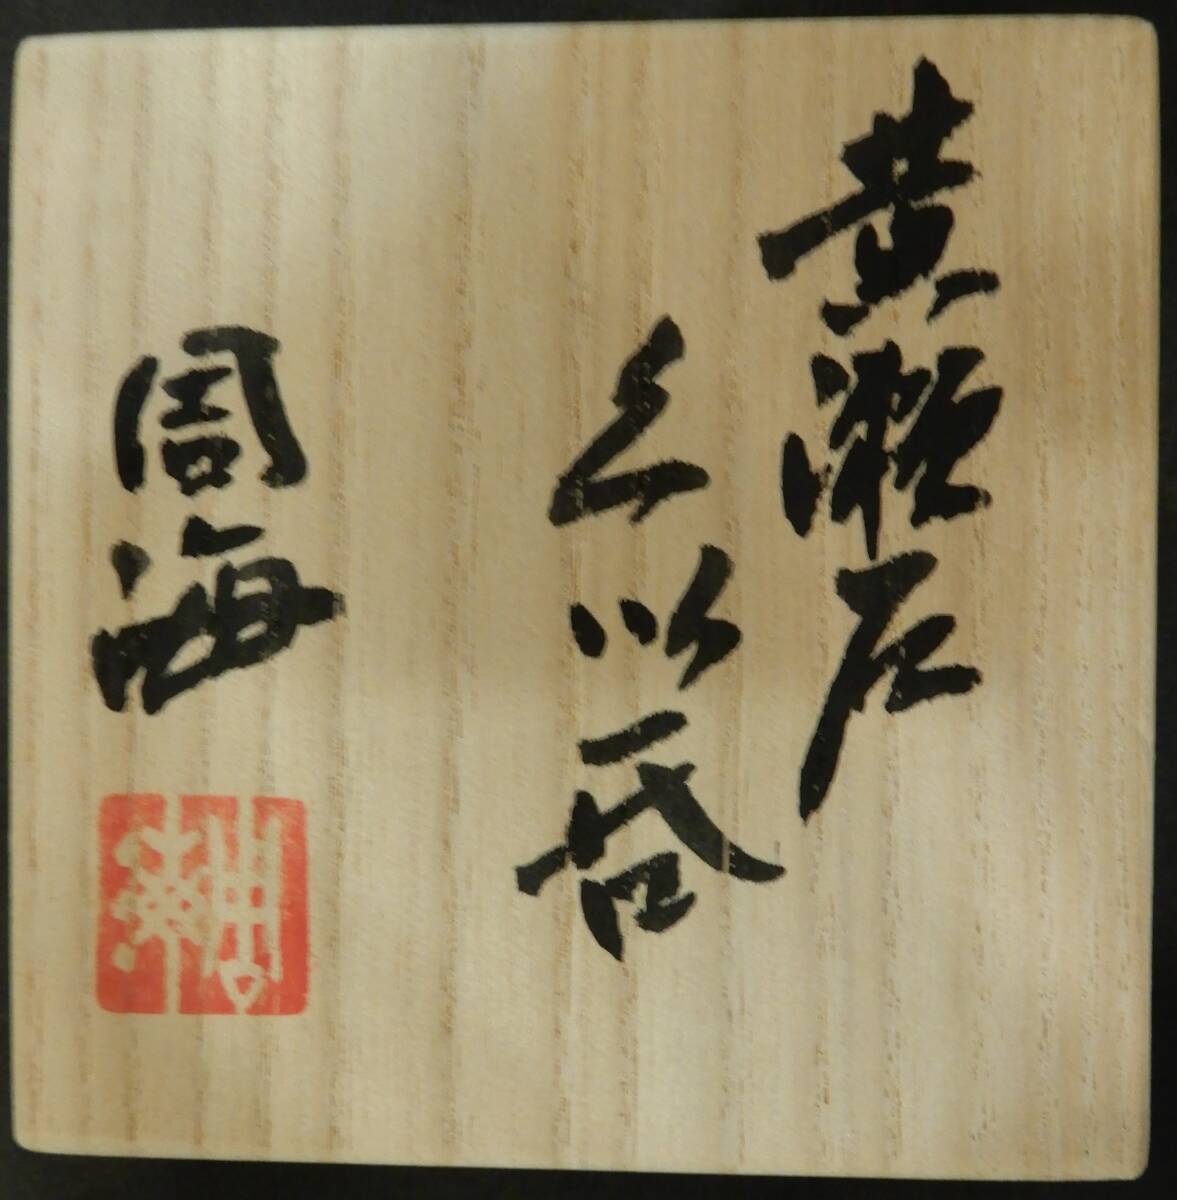 黄瀬戸
ぐい呑
周海